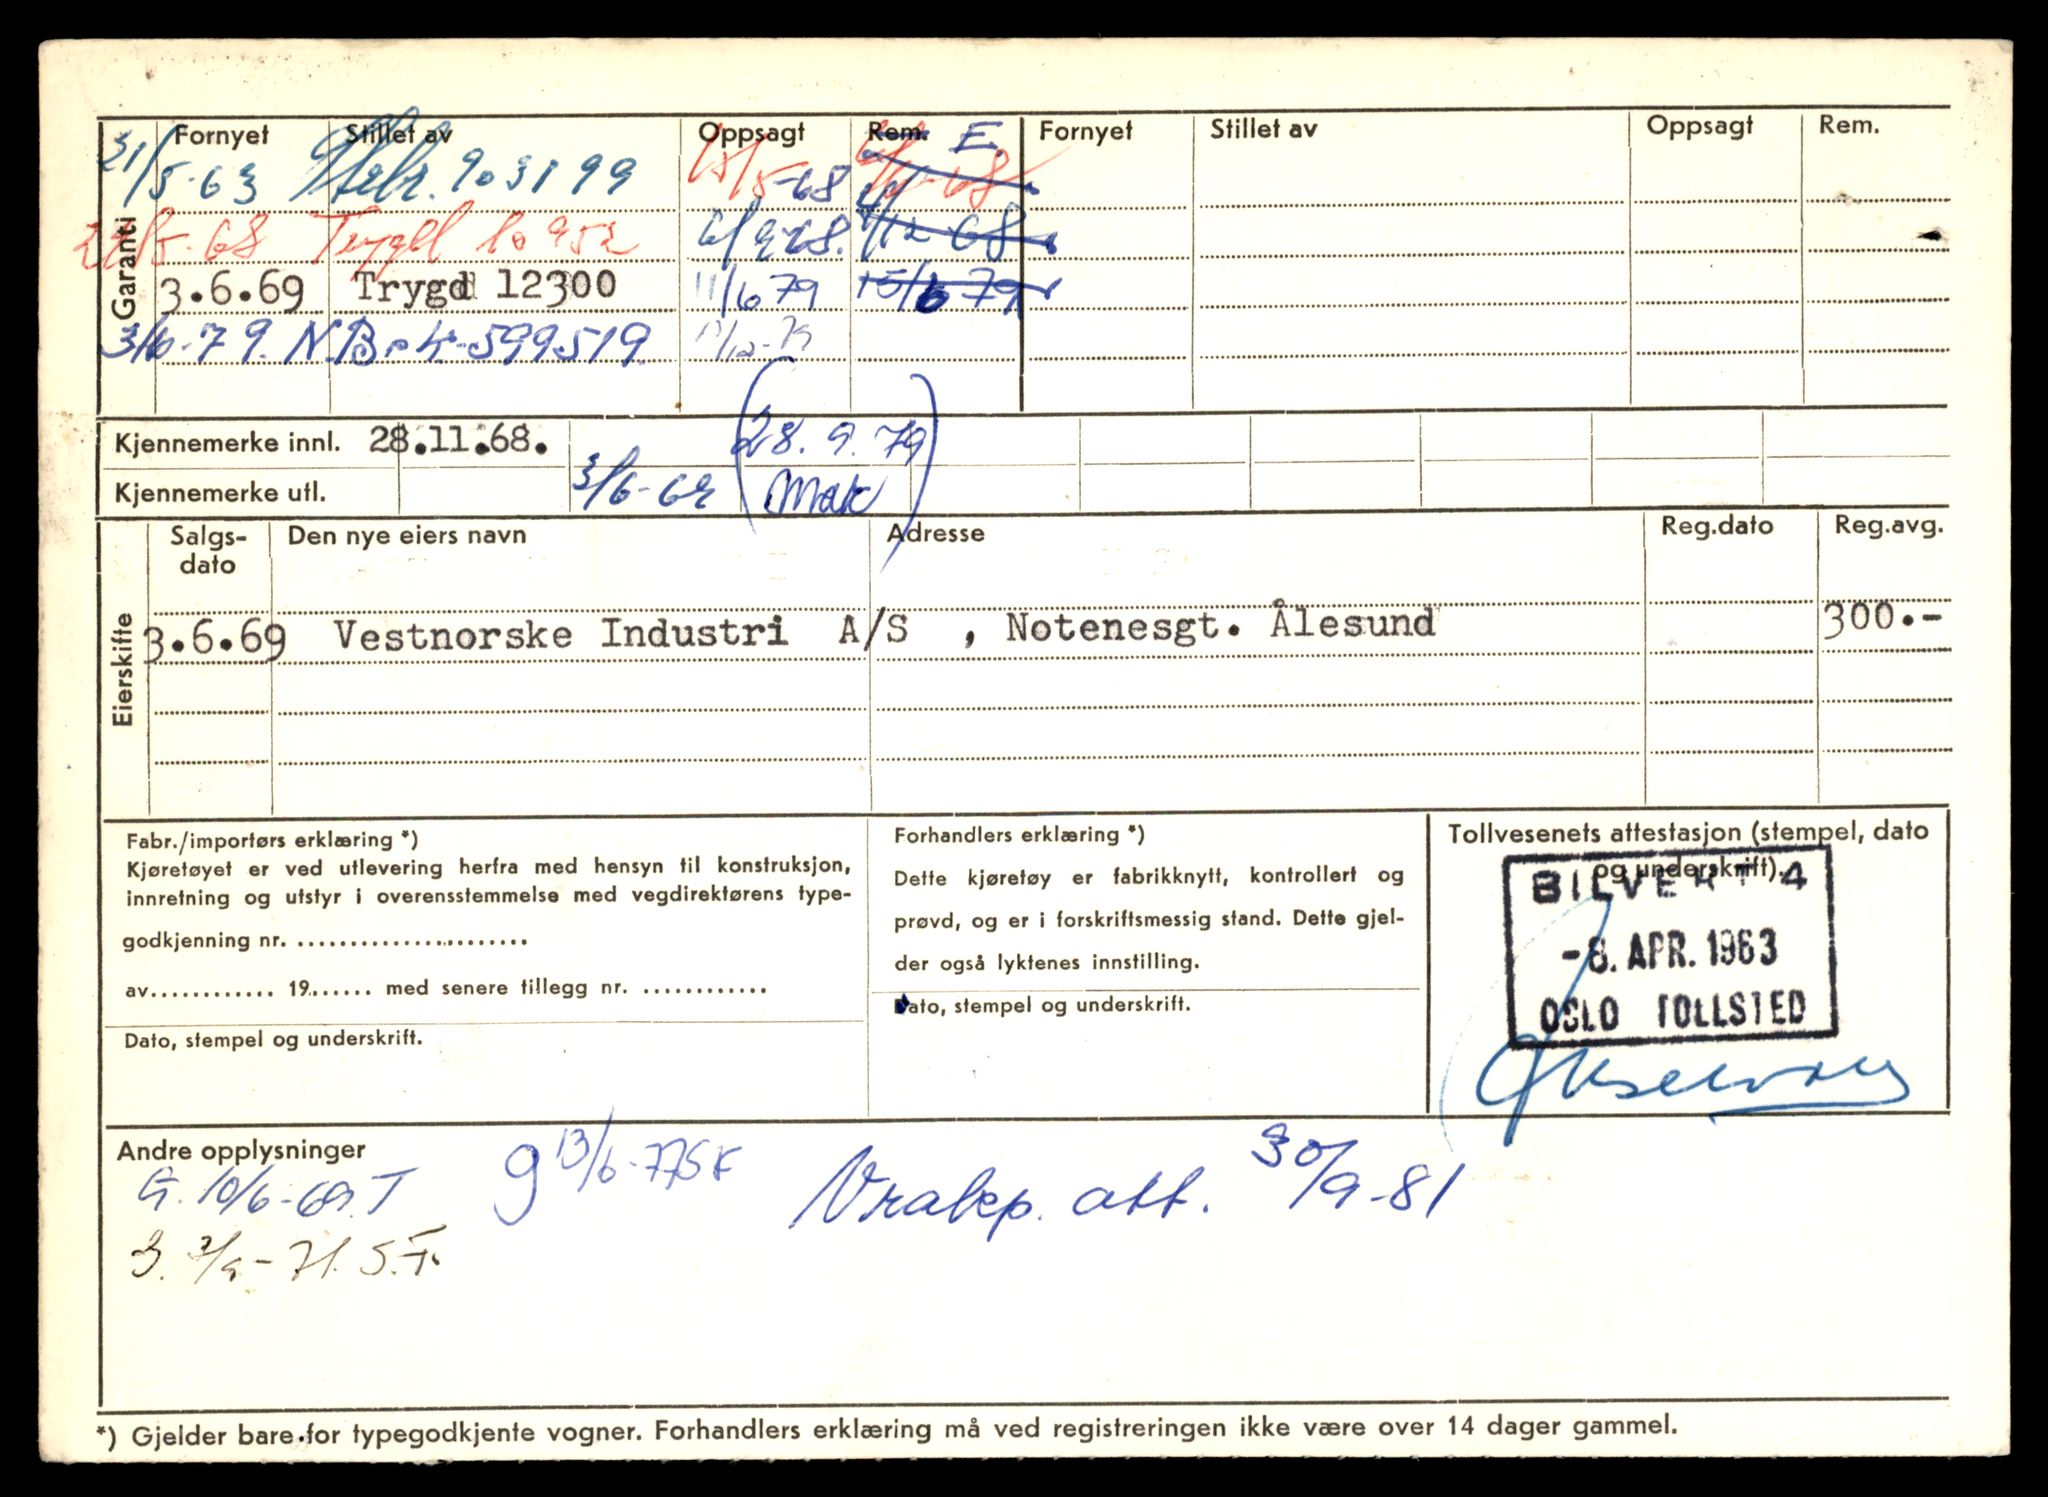 Garanti
Fornyet Stillet av Oppsagt Rem. E. Fornyet Stillet av Oppsagt Rem.
31/5-63 903199 15/5-68
5-68 Trygd 10952
3.6.69 Trygd 12300 11/6 79 15/6 79
3/6-79. N.B. 599519 11/12-79
Kjennemerke innl. 28.11.68. (28.9.79
Kjennemerke utl. 3/6-69 Mak)
Eierskifte
Salgs-dato Den nye eiers navn Adresse Reg.dato Reg.avg.
3.6.69 Vestnorske Industri A/S , Notenesgt. Ålesund 300.-
Fabr./importørs erklæring *)
Kjøretøyet er ved utlevering herfra med hensyn til konstruksjon,
innretning og utstyr i overensstemmelse med vegdirektørens type-
godkjenning nr. ......................
av............ 19...... med senere tillegg nr. ............
Dato, stempel og underskrift.
Forhandlers erklæring *)
Dette kjøretøy er fabrikknytt, kontrollert og
prøvd, og er i forskriftsmessig stand. Dette gjel-
der også lyktenes innstilling.
Dato, stempel og underskrift.
Tollvesenets attestasjon (stempel, dato
og underskrift).
BILVERT 4
-8. APR. 1963
OSLO TOLLSTED
Andre opplysninger
G. 10/6-69. T 9 13/6-77 SF Vrakp. att. 30/9-81
3. 7/9-71. S.T.
*) Gjelder bare for typegodkjente vogner. Forhandlers erklæring må ved registreringen ikke være over 14 dager gammel.